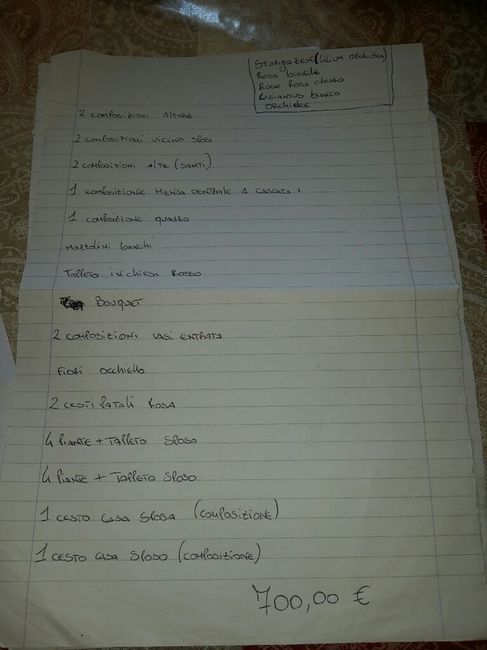 Stargazer (Lilium orchidea)
Rose bianche
Rose Rosa chiaro
Lisiantus bianco
orchidee
2 composizioni Altare
2 composizioni vicino sposi
2 composizioni Alte (Santi)
1 composizione mensa centrale a cascata
1 composizione quadro
mazzolini banchi
Tappeto in chiesa Rosso
Bouquet
2 composizioni vasi entrata
Fiori occhiello
2 cesti petali rosa
4 Piante + Tappeto sposa
4 Piante + Tappeto sposo
1 cesto casa sposa (composizione)
1 cesto casa sposo (composizione)
700,00 €